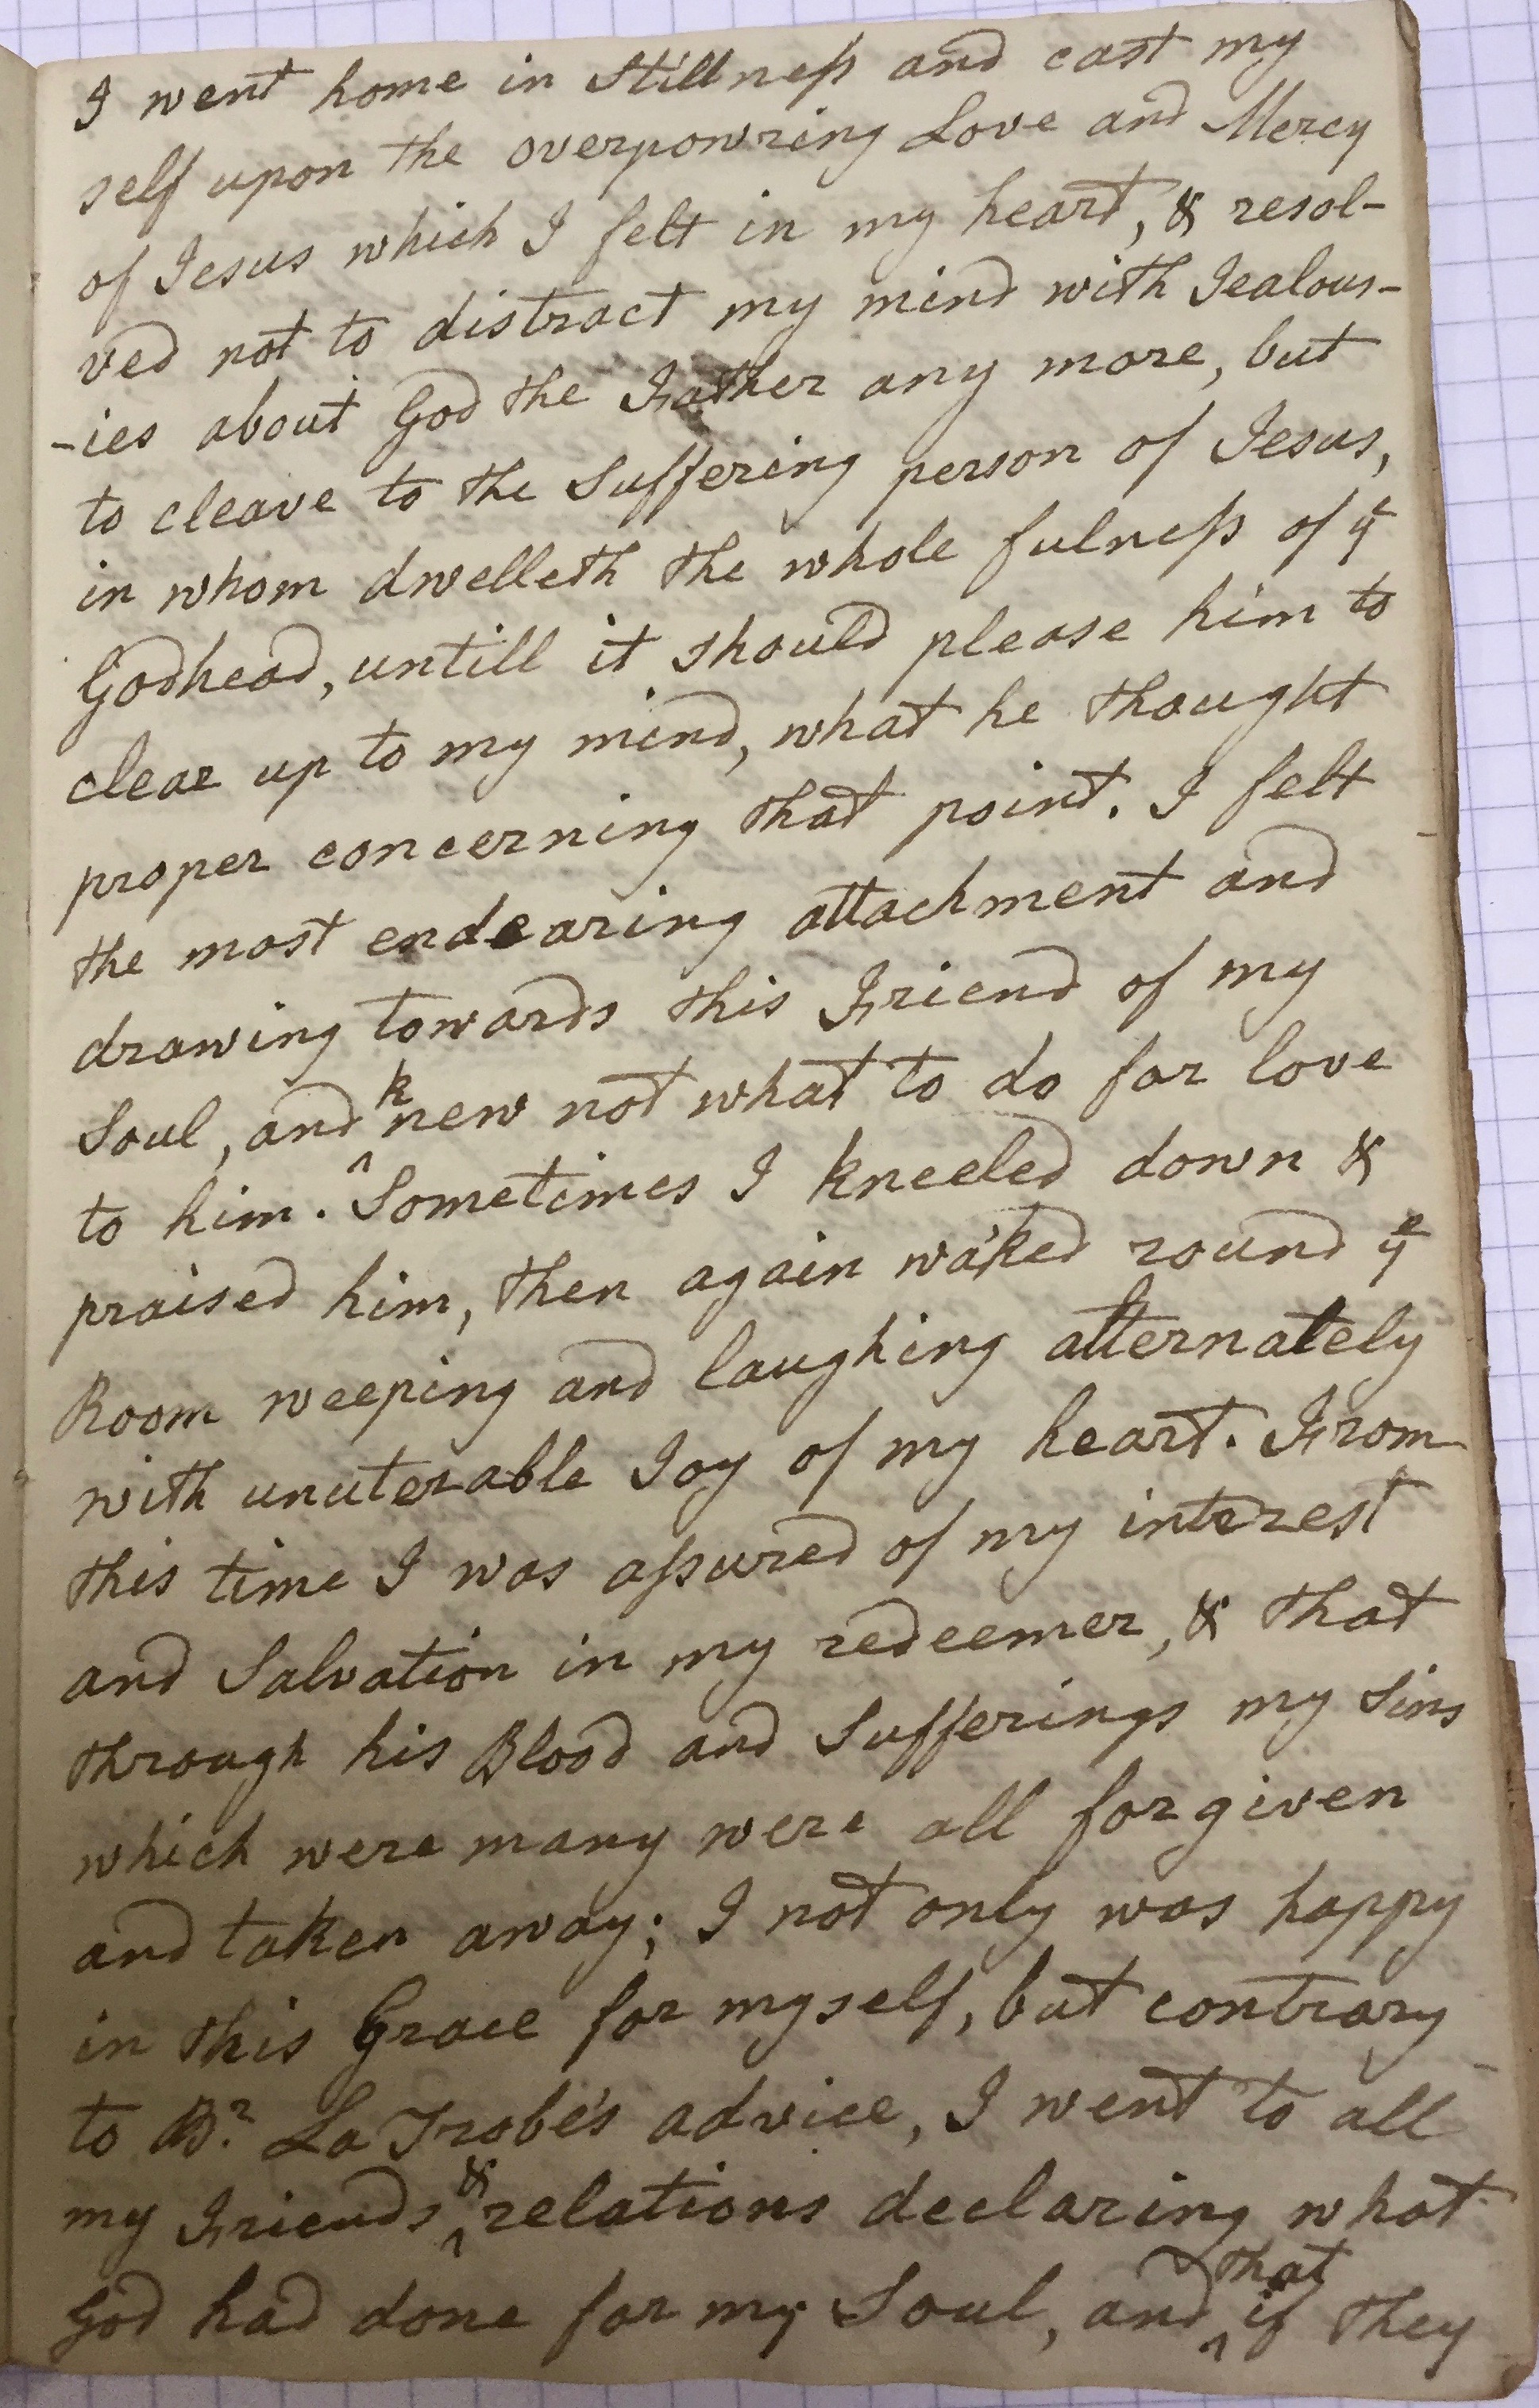 I went home in Stillneſs and cast my
self upon the overpowring Love and Mercy
of Jesus which I felt in my heart, & resol-
ved not to distract my mind with Jealous-
-ies about God the Father any more, but
to cleave to the Suffering person of Jesus,
in whom dwelleth the whole fulneſs of yᵉ
Godhead, untill it should please him to
clear up to my mind, what he thought
proper concerning that point. I felt
the most endearing attachment and
drawing towards this Friend of my
Soul, and ^knew not what to do for love
to him. Sometimes I kneeled down &
praised him, then again wa'ked round yᵉ
Room weeping and laughing alternately
with unuterable Joy of my heart. From
this time I was aſsured of my interest
and Salvation in my redeemer, & that
through his Blood and Sufferings my Sins
which were many were all forgiven
and taken away; I not only was happy
in this Grace for myself, but contrary
to Bʳ. La Trobe's advice, I went to all
my Friends ^& relations declaring what
God had done for my Soul, and ^that if they